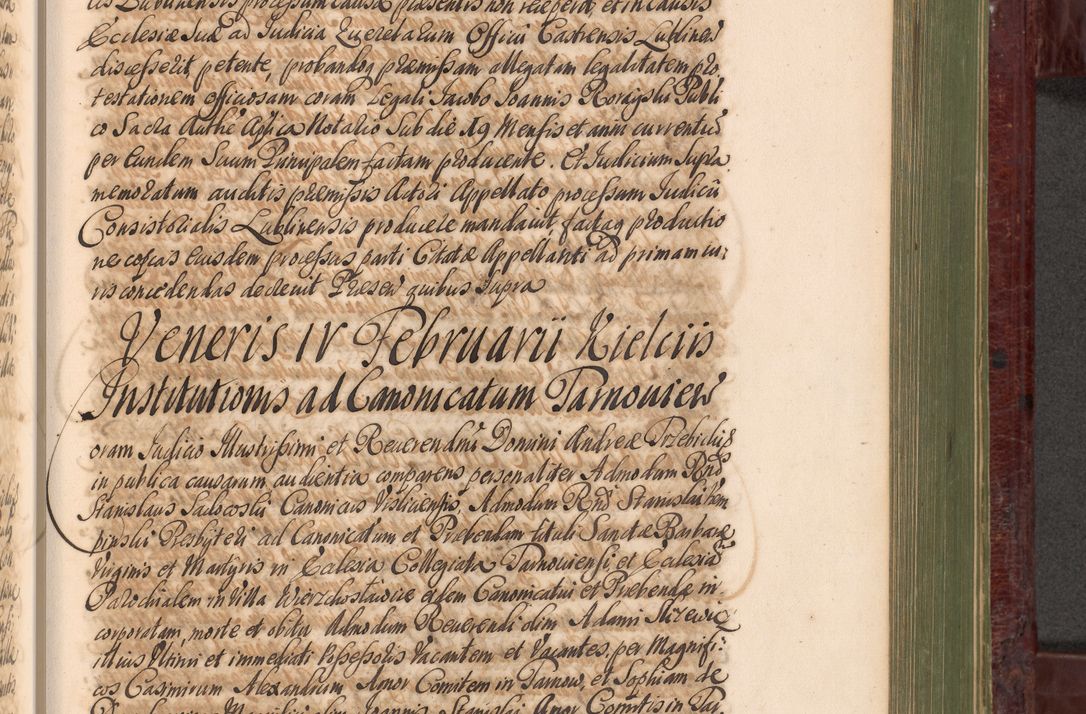 cis Lublinensis processum causæ præsentis non recepera, et in causis
Ecclesiæ suæ ad Judicia Quereralum Officii Castrensis Lublinen
discesserit, petente, probandoq præmissam allegatam legalitatem pro
testationem officiosam coram Legali Jacobo Joannis Roraigslii Publi
co Sacra Authe Aplica Notario Sub die 19 Mensis et anni currentis
per eundem Suum Principalem factam producente. Et Judicium Supra
memoratum auditis præmissis Actori Appellato processum Judicii
Consistorialis Lublinensis producere mandauit, factaq productio
ne copias eiusdem processus parti Citatæ Appellanti ad primam iu:
ris concedendas decreuit Præsen quibus supra
Veneris IV Februarii Kielciis
Institutionis ad Canonicatum Tarnouien
oram Judicio Illustrissimi et Reuerendmi Domini Andreæ Trzebickis
in publica causarum audientia comparens personaliter Admodum Rnd
Stanislaus Sadocoslii Canonicus Visliciensis, Admodum Rnd Stanislai Kem
pinslii Presbyteri ad Canonicatum et Præbendam tituli Sanctæ Barbaræ
Virginis et Martyris in Ecclesia Collegiata Tarnouiensi, et Ecclesia
Parochialem in Villa Wierzchosławice eidem Canonicatui et Præbendæ in:
corporatam, morte et obitu Admodum Reuerendi olim Adami
illius Vltimi et immediati Possessoris Vacantem et Vacantes, per Magnifi:
cos Casimirum Alexandrum, Amor Comitem in Tarnow, et Sophiam de
olim Joannis Stanislai Amor Comitis in Tar